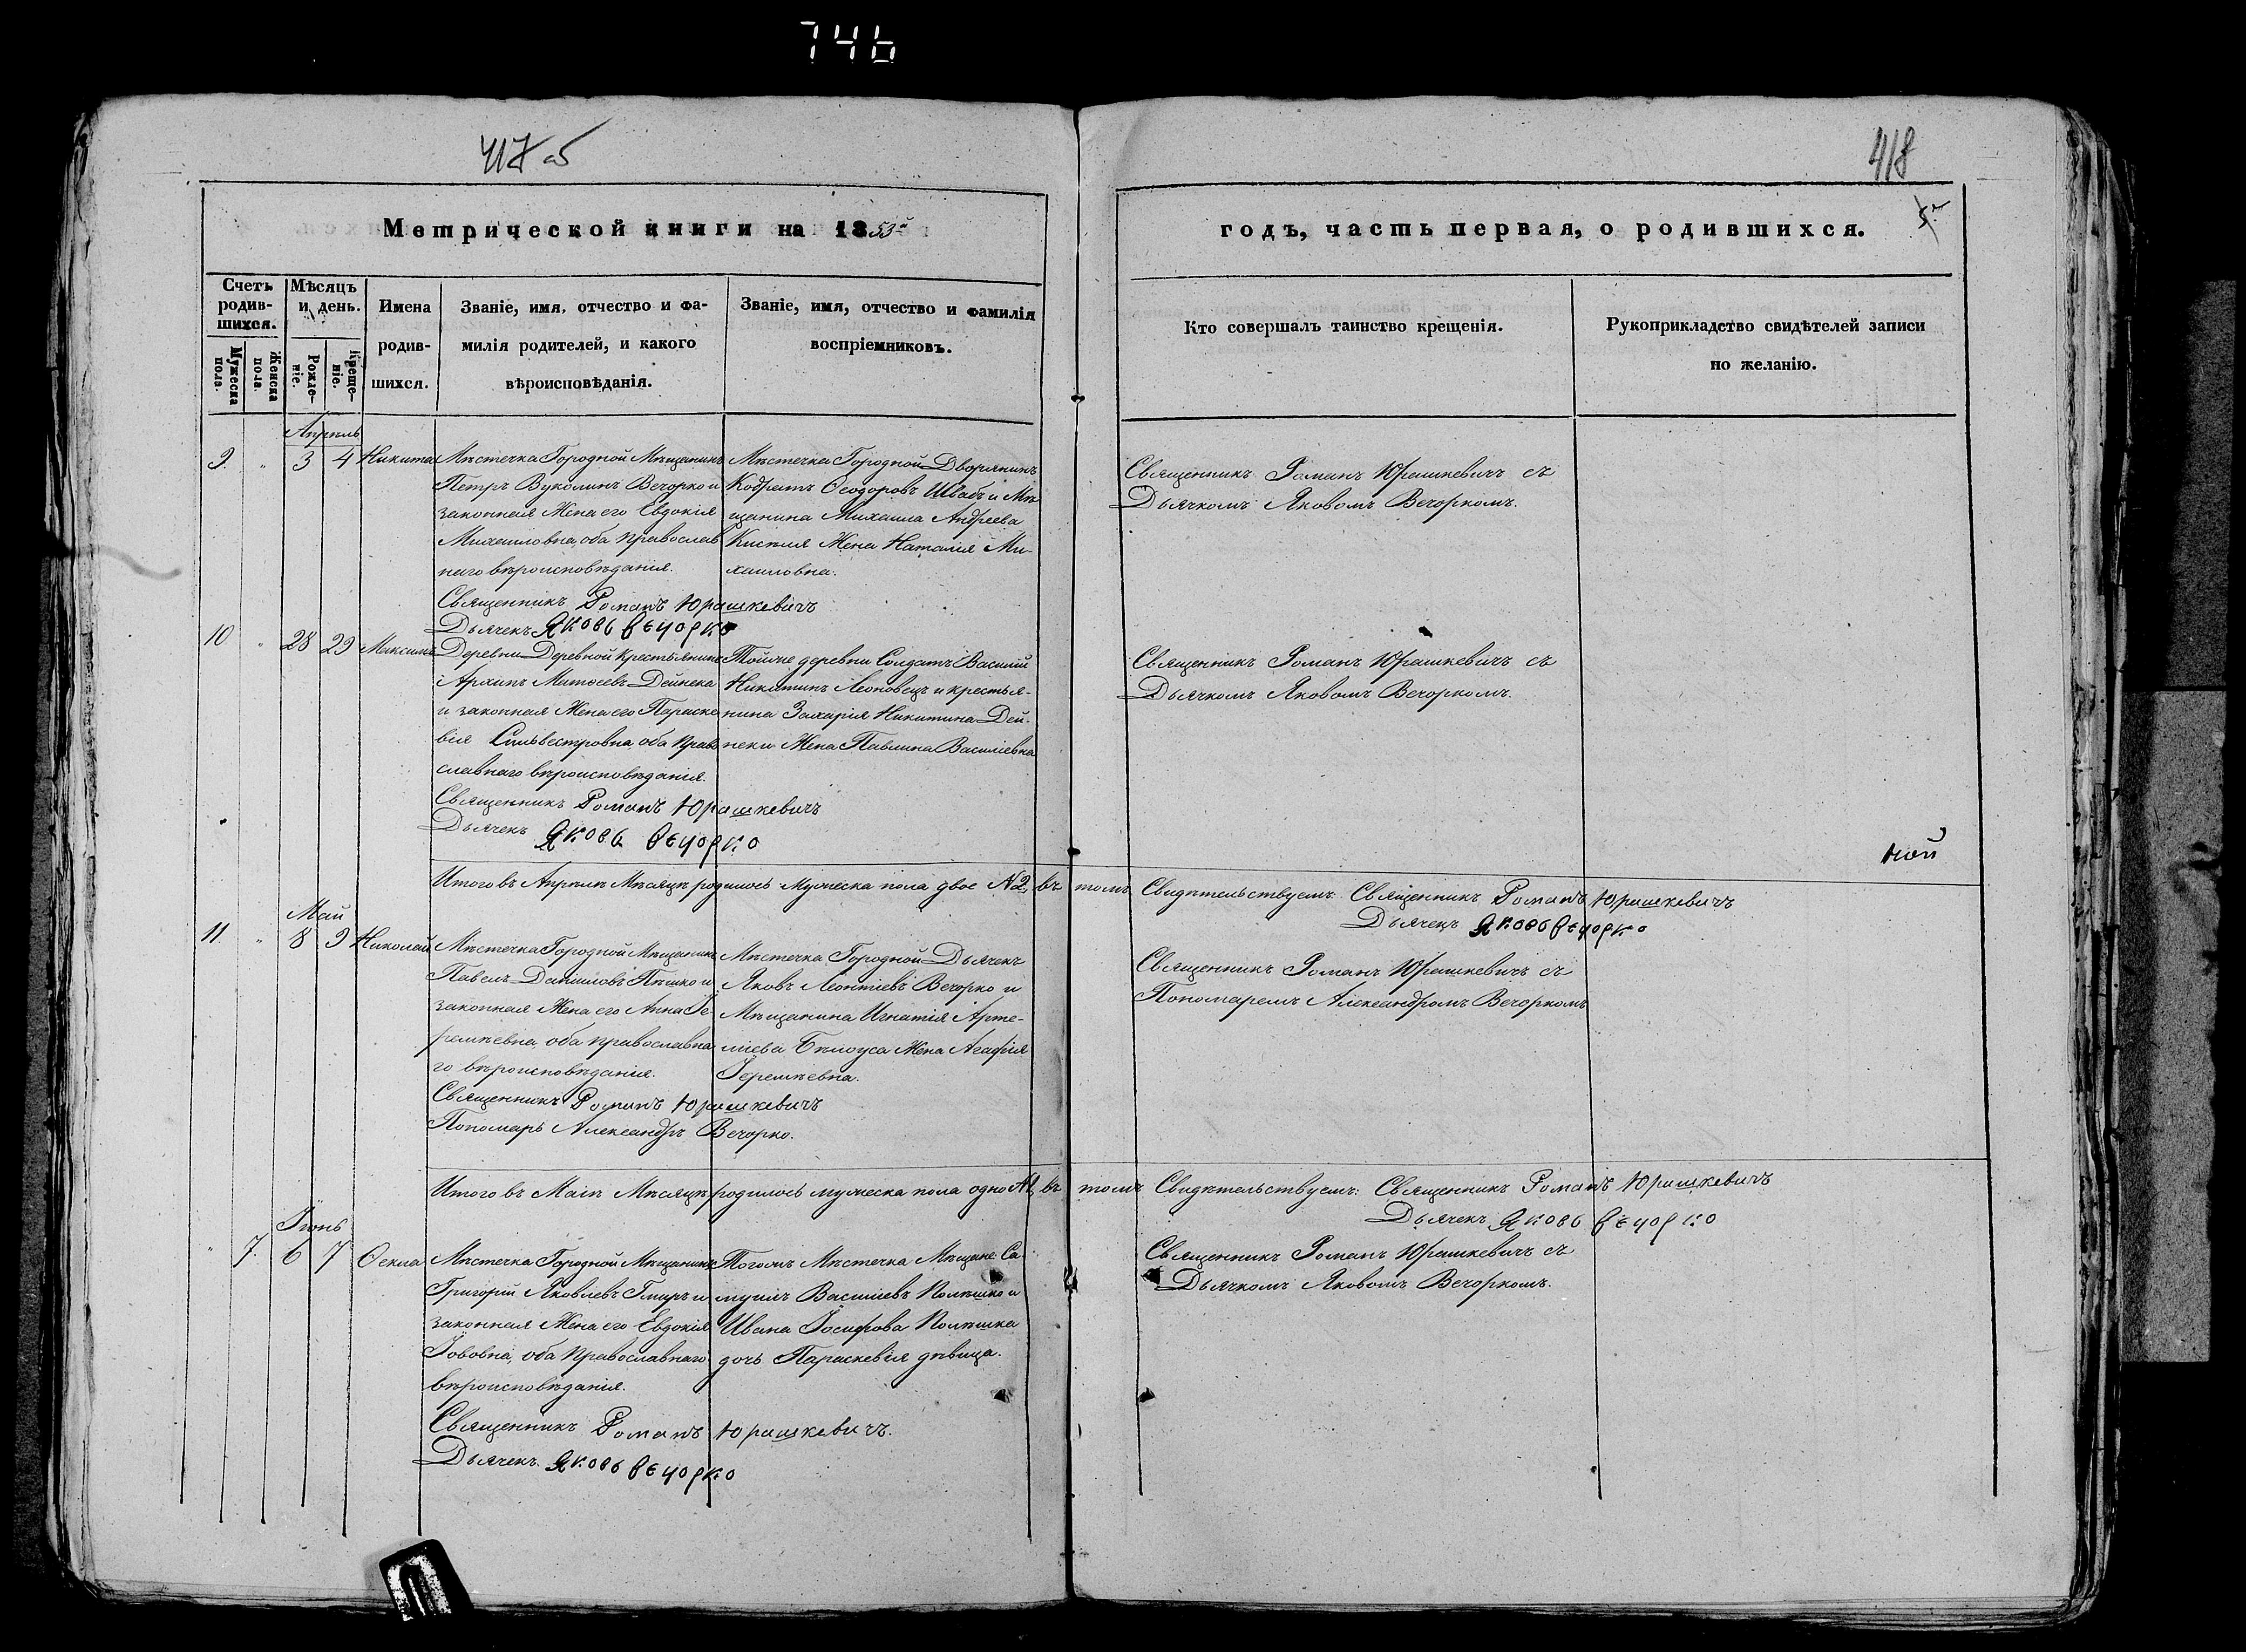 746
417 об
418
Метрической книги на 1853й
годъ, часть первая, о родившихся.
5й
Счетъ родив-шихся.
Мужеска пола.
Женска пола.
Мѣсяцъ и день.
Рожде-ніе.
Креще-ніе.
Имена родив-шихся.
Званіе, имя, отчество и фа-
милія родителей, и какого
вѣроисповѣданія.
Званіе, имя, отчество и фамилія
воспріемниковъ.
Кто совершалъ таинство крещенія.
Рукоприкладство свидѣтелей записи
по желанію.
Апрѣль
9. " 3 4 Никита
Мѣстечка Городной Мѣщанинъ
Петръ Вуколинъ Вечорко и
законная Жена его Евдокія
Михаиловна, оба православ
наго вѣроисповѣданія.
Мѣстечка Городной Дворянинъ
Кодратъ Ѳеодоровъ Швабъ и Мѣ
щанина Михаила Андреева
Кисѣля Жена Наталія Ми-
хаиловна.
Священникъ Романъ Юрашкевичъ съ
Дьячкомъ Яковомъ Вечоркомъ.
Священникъ Романъ Юрашкевичъ
Дьячекъ Яковъ Вечорко
10 " 28 29 Максимъ
Деревни Деревной Крестьянинъ
Архипъ Матѳеевъ Дейнека
и законная Жена его Параске
вія Сильвестровна оба право
славнаго вѣроисповѣданія.
Тойже деревни Солдатъ Василій
Никитинъ Леоновецъ и крестья-
нина Захарія Никитина Дей-
неки Жена Павлина Василіевна
Священникъ Романъ Юрашкевичъ съ
Дьячкомъ Яковомъ Вечоркомъ.
Священникъ Романъ Юрашкевичъ
Дьячекъ Яковъ Вечорко
ной
Итого въ Апрѣлѣ Мѣсяцѣ родилось мужеска пола двое №2, въ томъ Свидѣтельствуемъ: Священникъ Романъ Юрашкевичъ
Дьячекъ Яковъ Вечорко
Май
11. " 8 9 Николай
Мѣстечка Городной Мѣщанинъ
Павелъ Даніиловъ Пѣшко и
законная Жена его Анна Іе
ремѣевна, оба православна
го вѣроисповѣданія.
Мѣстечка Городной Дьячекъ
Яковъ Леонтіевъ Вечорко и
Мѣщанина Игнатія Арте-
міева Бѣлоуса Жена Агафія
Іеремѣевна.
Священникъ Романъ Юрашкевичъ съ
Пономаремъ Александромъ Вечоркомъ
Священникъ Романъ Юрашкевичъ
Пономарь Александръ Вечорко.
Итого въ Маіѣ Мѣсяцѣ родилось мужеска пола одно №1, въ томъ Свидѣтельствуемъ: Священникъ Романъ Юрашкевичъ
Дьячекъ Яковъ Вечорко
Іюнь
" 7. 6 7 Ѳекла
Мѣстечка Городной Мѣщанинъ
Григорій Яковлевъ Гмыръ и
законная Жена его Евдокія
Іововна, оба Православнаго
вѣроисповѣданія.
Тогожъ Мѣстечка Мѣщане: Са-
муилъ Василіевъ Полѣшко и
Ивана Іосифова Полѣшка
дочь Параскевія дѣвица.
Священникъ Романъ Юрашкевичъ съ
Дьячкомъ Яковомъ Вечоркомъ.
Священникъ Романъ Юрашкевичъ.
Дьячекъ Яковъ Вечорко